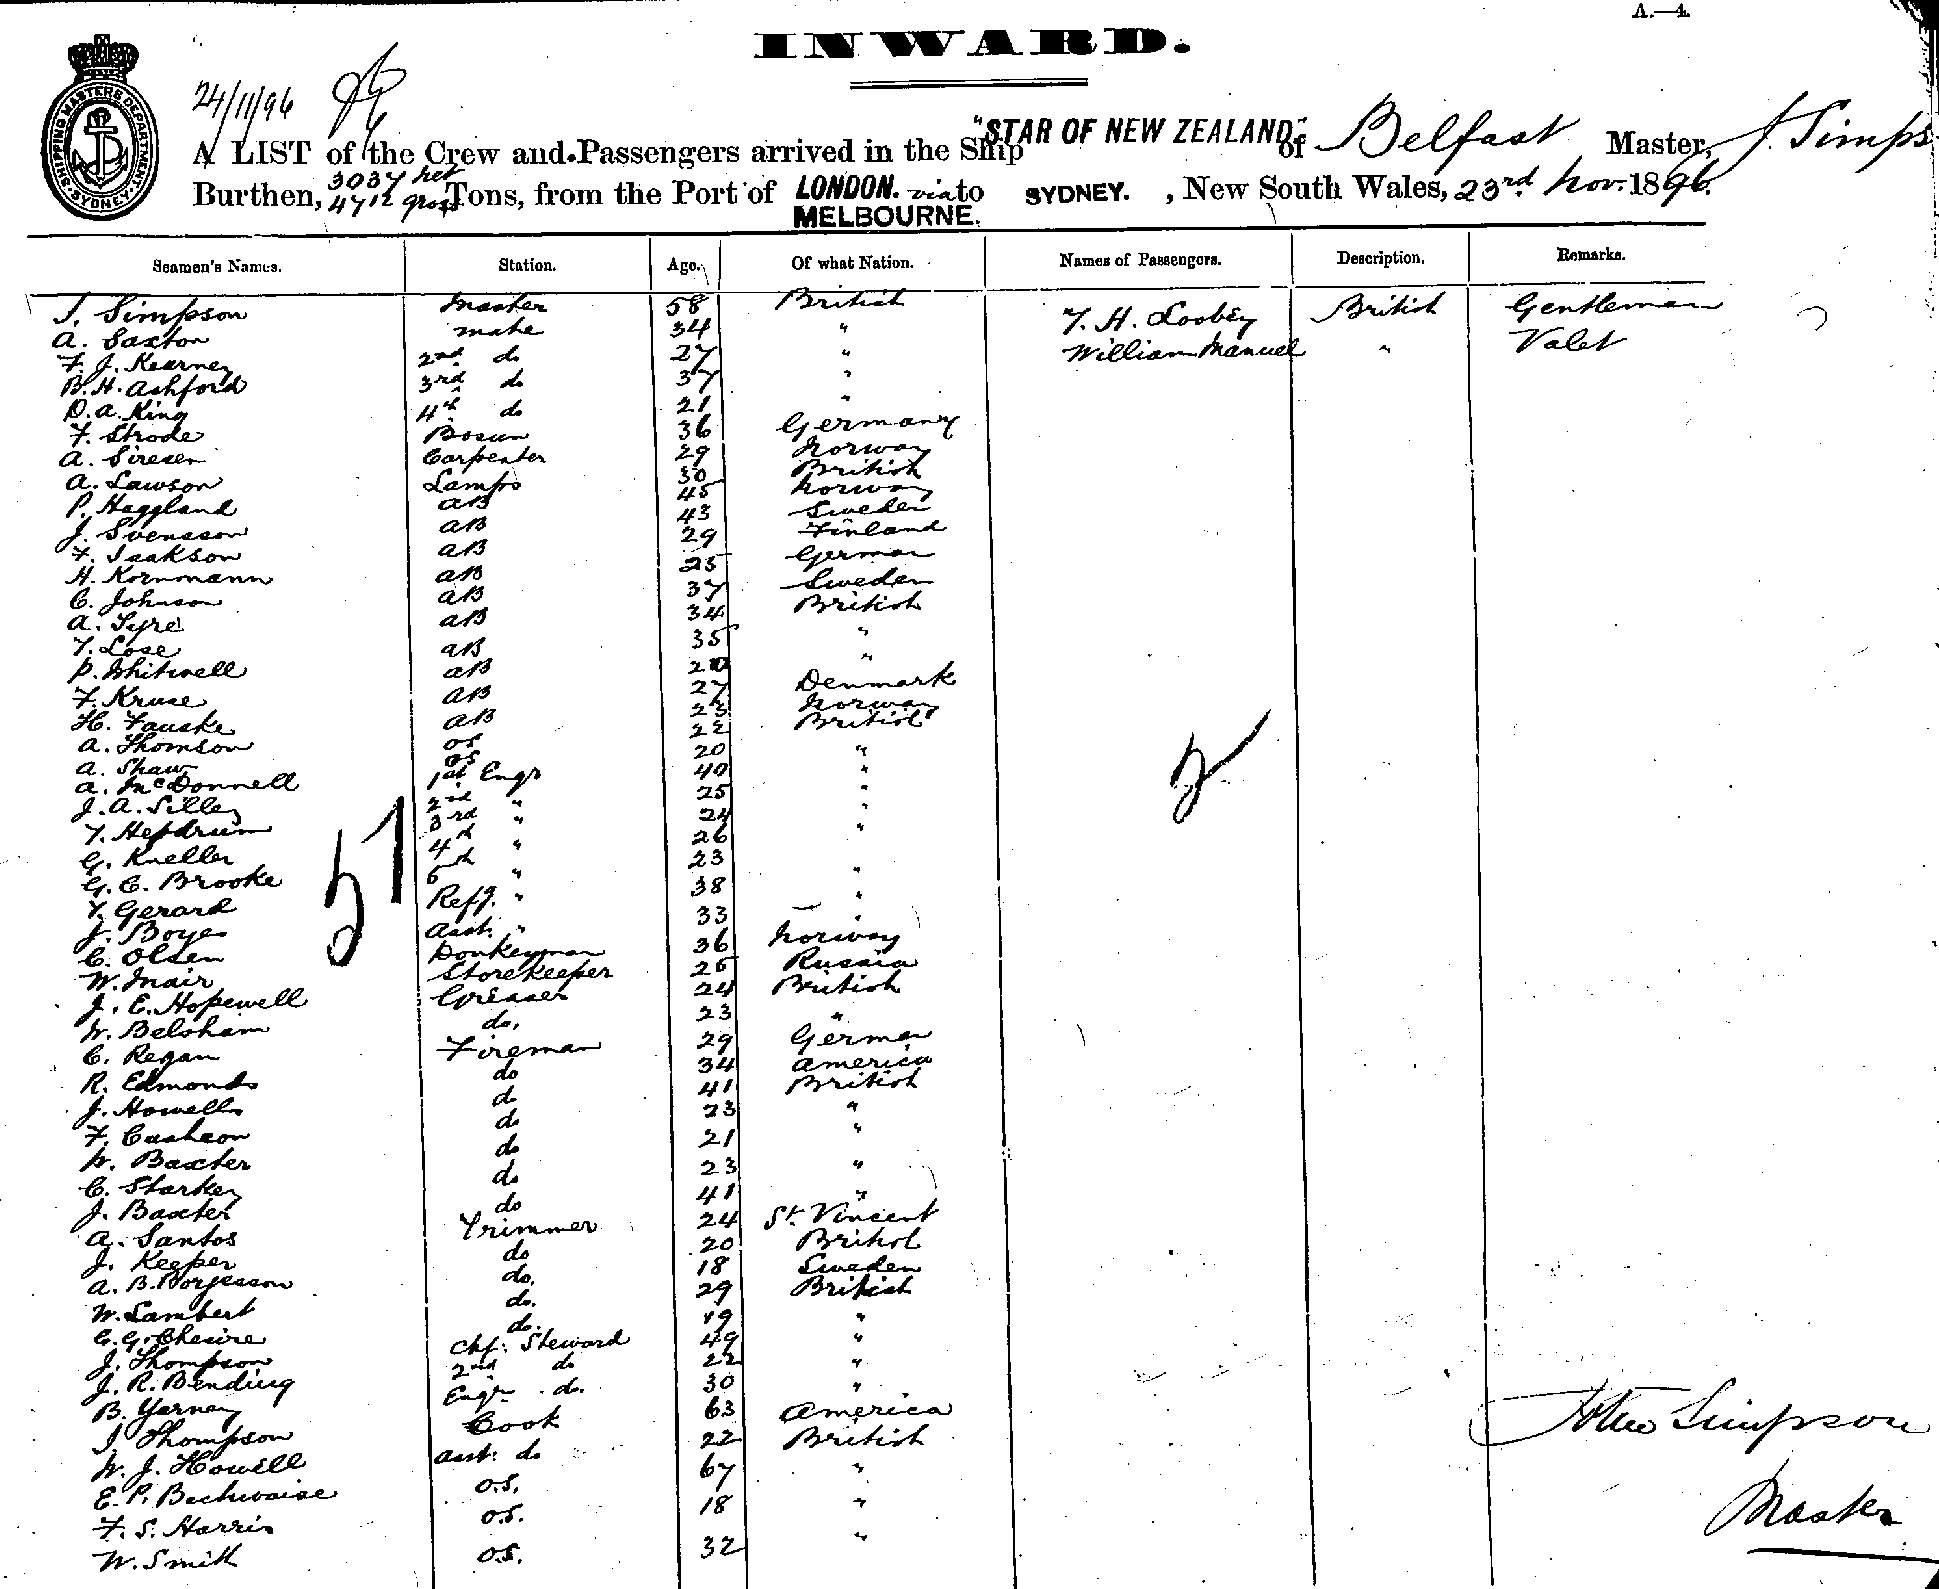 A.—4.
INWARD.
SHIPPING MASTERS DEPARTMENT SYDNEY
24/11/96
A LIST of the Crew and Passengers arrived in the Ship "STAR OF NEW ZEALAND" of Belfast Master, J. Simps
Burthen, 3037 net 4712 gross Tons, from the Port of LONDON. via MELBOURNE. to SYDNEY. , New South Wales, 23rd Nov. 1896.
Seamen's Names. Station. Age. Of what Nation. Names of Passengers. Description. Remarks.
J. Simpson Master 58 British T. H. Loobey British Gentleman
A. Saxton Mate 34 " William Manuel " Valet
F. J. Kearney 2nd do 27 "
B. H. Ashford 3rd do 37 "
D. A. King 4th do 21 "
F. Strode Bosun 36 Germany
A. Siresen Carpenter 29 Norway
A. Lawson Lamps 30 British
P. Haggland AB 45 Norway
J. Svensson AB 43 Sweden
F. Isakson AB 29 Finland
H. Kornmann AB 25 German
C. Johnson AB 37 Sweden
A. Tyre AB 34 British
T. Lose AB 35 "
P. Whitwell AB "
F. Kruse AB 27 Denmark
H. Fauske AB 23 Norway
A. Thomson OS 22 British
A. Shaw OS 20 "
A. McDonnell 1st Engr 40 "
J. A. Silley 2nd " 25 "
T. Hepdrum 3rd " 24 "
G. Kneller 4th " 26 "
G. C. Brooke 5th " 23
T. Gerard Refg. " 38 "
J. Boyes Asst. " 33 "
C. Olsen Donkeyman 36 Norway
W. Mair Storekeeper 25 Russia
J. E. Hopewell Greaser 24 British
W. Belsham do. 23 "
C. Regan Fireman 29 German
R. Edmonds do 34 America
J. Howells do 41 British
F. Casheon do 23 "
W. Baxter do 21 "
C. Starkey do 23 "
J. Baxter do 41 "
A. Santos Trimmer 24 St. Vincent
J. Keeper do 20 British
A. B. Borjesson do. 18 Sweden
W. Lambert do. 29 British
C. G. Chesire do. 19 "
J. Thompson Chf: Steward 49 "
J. R. Bending 2nd do 22 "
B. Yarney Engr do. 30 "
J. Thompson Cook 63 America
W. J. Howell Asst: do 22 British
E. P. Bechwaise O.S. 67 "
F. S. Harris O.S. 18 "
W. Smith O.S. 32 "
51
2
John Simpson
Master